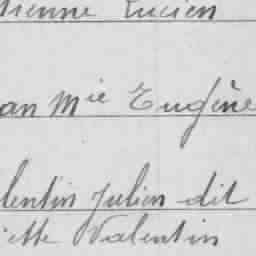 tienne Lucien
an Mie Eugène
lentin Julien dit
iette Valentin